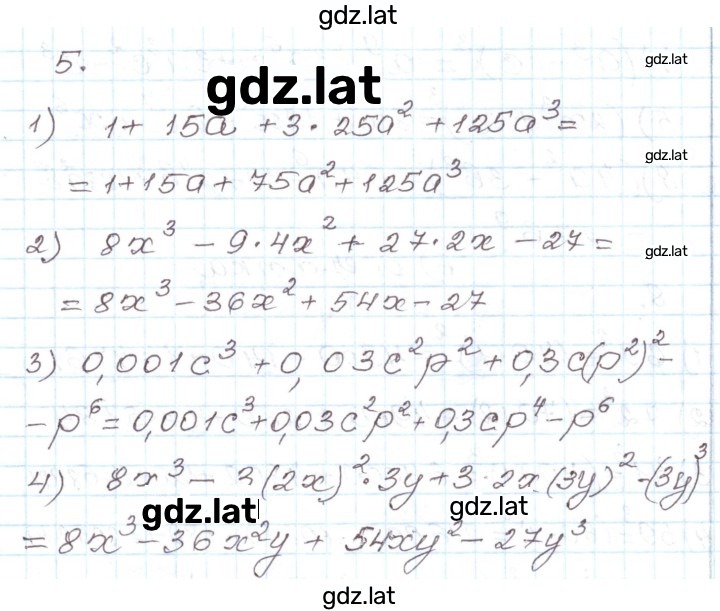 gdz.lat
5.
gdz.lat
gdz.lat
1) 1 + 15a + 3 · 25a² + 125a³ =
gdz.lat
= 1 + 15a + 75a² + 125a³
2) 8x³ − 9·4x² + 27·2x − 27 =
gdz.lat
= 8x³ − 36x² + 54x − 27
3) 0,001c³ + 0,03c²p² + 0,3c(p²)² −
− p⁶ = 0,001c³ + 0,03c²p² + 0,3cp⁴ − p⁶
4) 8x³ − 3(2x)²·3y + 3·2x(3y)² − (3y)³
gdz.lat
gdz.lat
= 8x³ − 36x²y + 54xy² − 27y³
gdz.lat